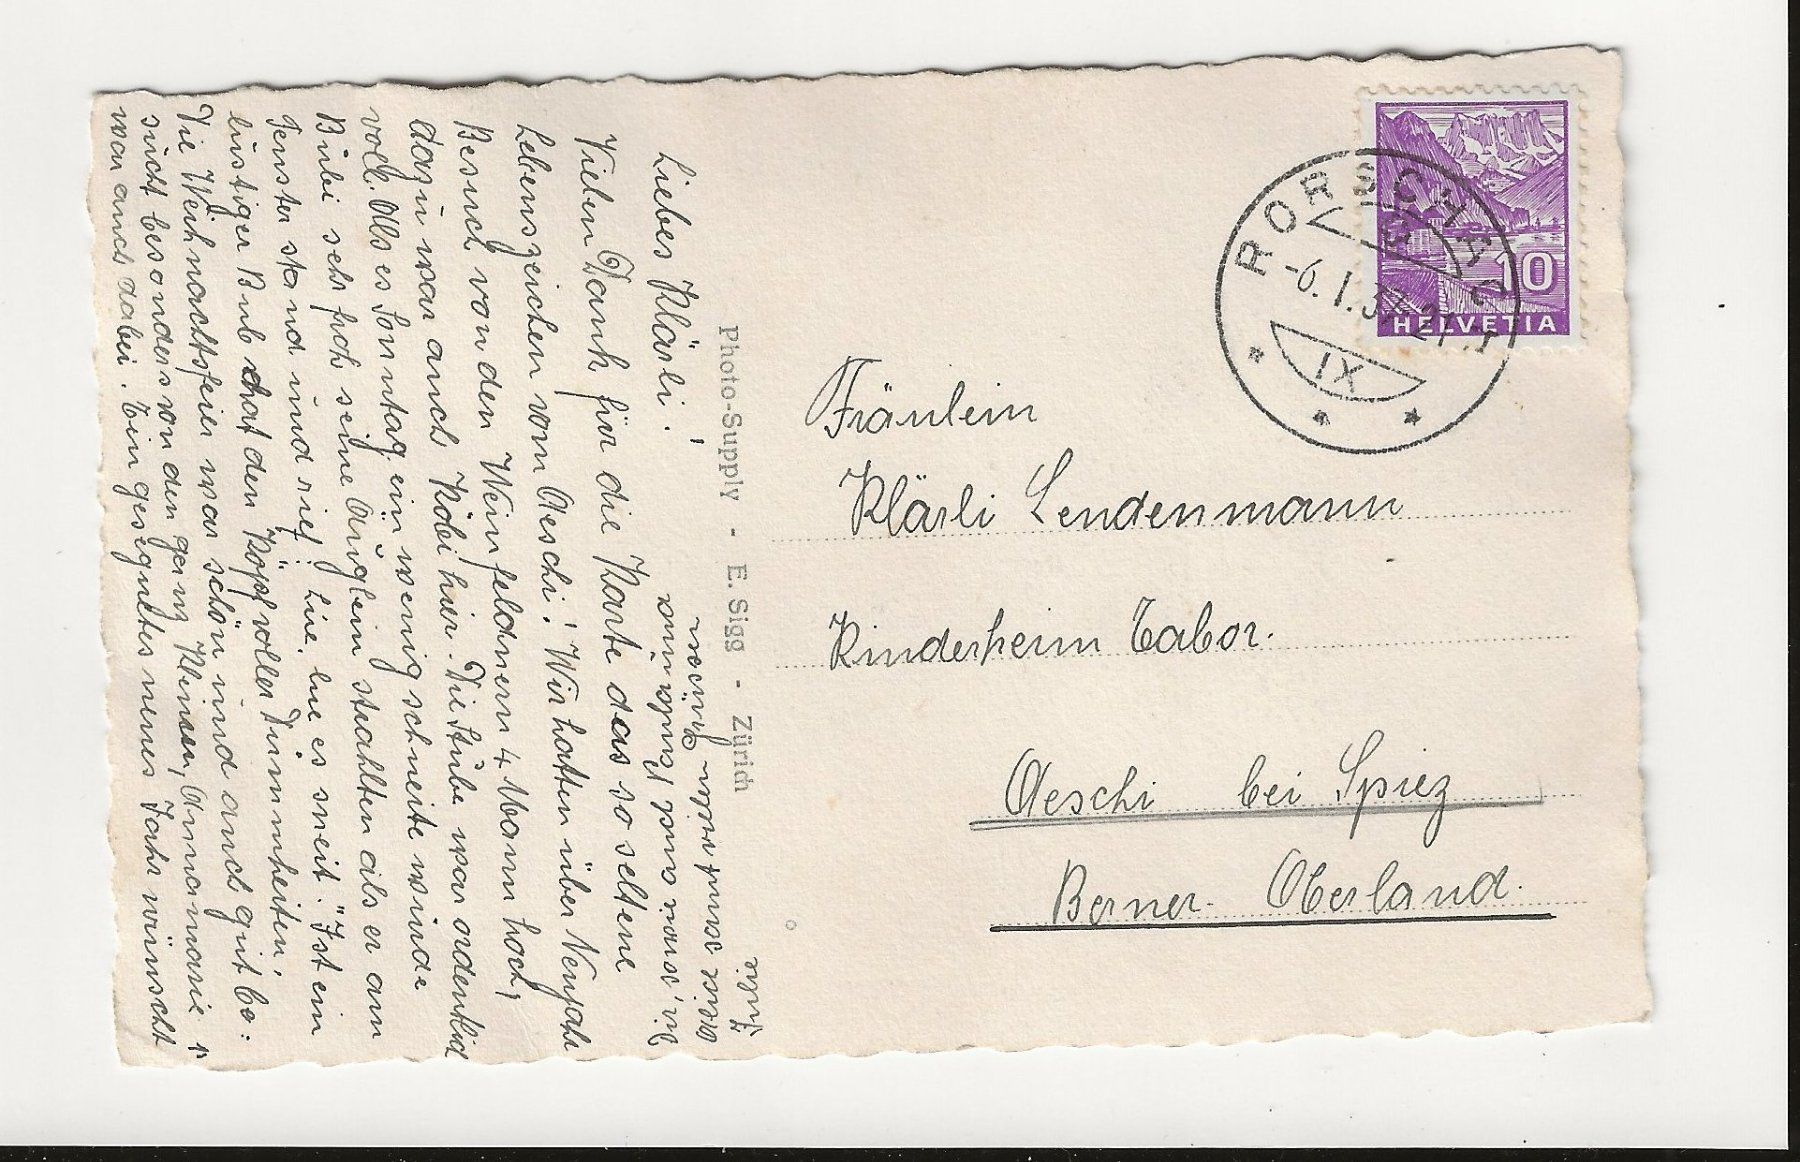 Liebes Klärli!
Vielen Dank für die Karte das so seltene
Lebenszeichen von Aeschi! Wir hatten über Neujahr
Besuch von den Weinfeldnern 4 Mann hoch,
dazu war auch Köbi hier. Die Stube war ordentlich
voll. Als es Sonntag ein wenig schneite wurde
Bubi sehr froh seine Äuglein strahlten als er am
Fenster stand und rief: lue, lue es sneit. "Ist ein
lustiger Bub & hat den Kopf voller Dummheiten.
Die Weihnachtsfeier war schön und auch gut be:
sucht besonders von den ganz Kleinen, Annamarie
war auch dabei. Ein gesegnetes neues Jahr wünscht
Dir, samt
Julie
Photo-Supply - E. Sigg - Zürich
RORSCHACH
-6.I.37-21
IX
10
HELVETIA
Fräulein
Klärli Lendenmann
Kinderheim Tabor.
Aeschi bei Spiez
Berner Oberland.